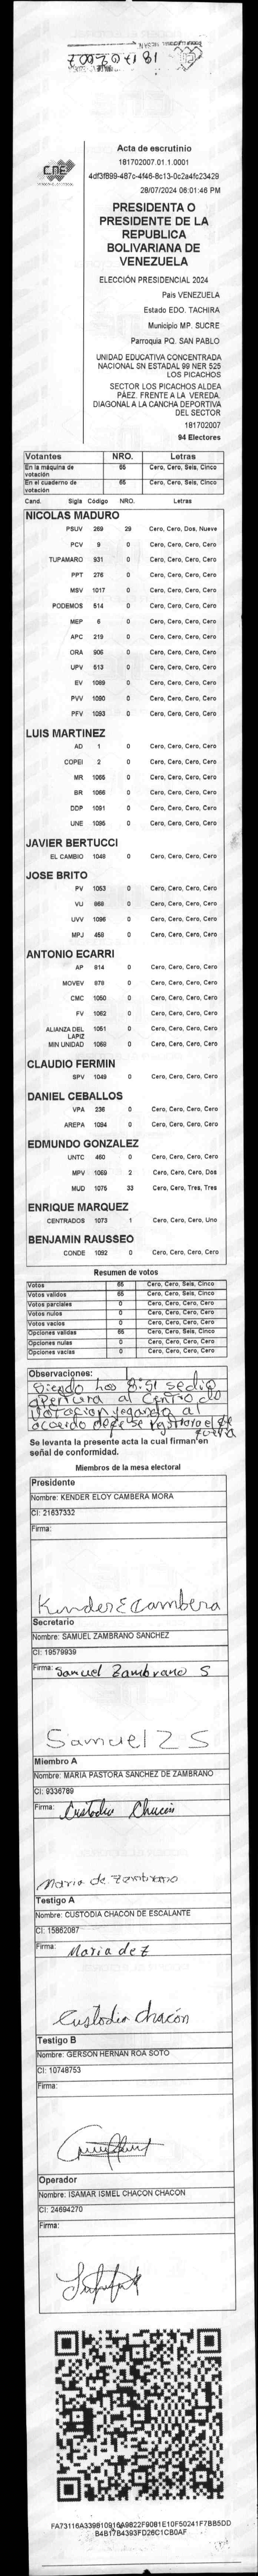 181702007
CNE
Acta de escrutinio
181702007.01.1.0001
4df3f899-487c-4f46-8c13-0c2a4fc23429
28/07/2024 06:01:46 PM
PRESIDENTA O
PRESIDENTE DE LA
REPUBLICA
BOLIVARIANA DE
VENEZUELA
ELECCIÓN PRESIDENCIAL 2024
Pais VENEZUELA
Estado EDO. TACHIRA
Municipio MP. SUCRE
Parroquia PQ. SAN PABLO
UNIDAD EDUCATIVA CONCENTRADA
NACIONAL SN ESTADAL 99 NER 525
LOS PICACHOS
SECTOR LOS PICACHOS ALDEA
PÁEZ. FRENTE A LA VEREDA.
DIAGONAL A LA CANCHA DEPORTIVA
DEL SECTOR
181702007
94 Electores
Votantes NRO. Letras
En la máquina de votación 65 Cero, Cero, Seis, Cinco
En el cuaderno de votación 65 Cero, Cero, Seis, Cinco
Cand. Sigla Código NRO. Letras
NICOLAS MADURO
PSUV 269 29 Cero, Cero, Dos, Nueve
PCV 9 0 Cero, Cero, Cero, Cero
TUPAMARO 931 0 Cero, Cero, Cero, Cero
PPT 276 0 Cero, Cero, Cero, Cero
MSV 1017 0 Cero, Cero, Cero, Cero
PODEMOS 514 0 Cero, Cero, Cero, Cero
MEP 6 0 Cero, Cero, Cero, Cero
APC 219 0 Cero, Cero, Cero, Cero
ORA 906 0 Cero, Cero, Cero, Cero
UPV 613 0 Cero, Cero, Cero, Cero
EV 1089 0 Cero, Cero, Cero, Cero
PVV 1090 0 Cero, Cero, Cero, Cero
PFV 1093 0 Cero, Cero, Cero, Cero
LUIS MARTINEZ
AD 1 0 Cero, Cero, Cero, Cero
COPEI 2 0 Cero, Cero, Cero, Cero
MR 1065 0 Cero, Cero, Cero, Cero
BR 1066 0 Cero, Cero, Cero, Cero
DDP 1091 0 Cero, Cero, Cero, Cero
UNE 1095 0 Cero, Cero, Cero, Cero
JAVIER BERTUCCI
EL CAMBIO 1048 0 Cero, Cero, Cero, Cero
JOSE BRITO
PV 1053 0 Cero, Cero, Cero, Cero
VU 868 0 Cero, Cero, Cero, Cero
UVV 1096 0 Cero, Cero, Cero, Cero
MPJ 459 0 Cero, Cero, Cero, Cero
ANTONIO ECARRI
AP 814 0 Cero, Cero, Cero, Cero
MOVEV 878 0 Cero, Cero, Cero, Cero
CMC 1050 0 Cero, Cero, Cero, Cero
FV 1062 0 Cero, Cero, Cero, Cero
ALIANZA DEL LAPIZ 1051 0 Cero, Cero, Cero, Cero
MIN UNIDAD 1068 0 Cero, Cero, Cero, Cero
CLAUDIO FERMIN
SPV 1049 0 Cero, Cero, Cero, Cero
DANIEL CEBALLOS
VPA 236 0 Cero, Cero, Cero, Cero
AREPA 1094 0 Cero, Cero, Cero, Cero
EDMUNDO GONZALEZ
UNTC 460 0 Cero, Cero, Cero, Cero
MPV 1069 2 Cero, Cero, Cero, Dos
MUD 1075 33 Cero, Cero, Tres, Tres
ENRIQUE MARQUEZ
CENTRADOS 1073 1 Cero, Cero, Cero, Uno
BENJAMIN RAUSSEO
CONDE 1092 0 Cero, Cero, Cero, Cero
Resumen de votos
Votos 65 Cero, Cero, Seis, Cinco
Votos validos 65 Cero, Cero, Seis, Cinco
Votos parciales 0 Cero, Cero, Cero, Cero
Votos nulos 0 Cero, Cero, Cero, Cero
Votos vacios 0 Cero, Cero, Cero, Cero
Opciones validas 65 Cero, Cero, Seis, Cinco
Opciones nulas 0 Cero, Cero, Cero, Cero
Opciones vacias 0 Cero, Cero, Cero, Cero
Observaciones:
Siendo las 8:51 se dio
apertura al Centro de
Votacion legando al
acuerdo de
Se levanta la presente acta la cual firman en
señal de conformidad.
Miembros de la mesa electoral
Presidente
Nombre: KENDER ELOY CAMBERA MORA
CI: 21637332
Firma:
Kender E Cambera
Secretario
Nombre: SAMUEL ZAMBRANO SANCHEZ
CI: 19579939
Firma: Samuel Zambrano S
Samuel Z S
Miembro A
Nombre: MARIA PASTORA SANCHEZ DE ZAMBRANO
CI: 9336769
Firma: Custodia Chacón
Maria de Zambrano
Testigo A
Nombre: CUSTODIA CHACON DE ESCALANTE
CI: 15862087
Firma: Maria de Z
Custodia Chacón
Testigo B
Nombre: GERSON HERNAN ROA SOTO
CI: 10748753
Firma:
Operador
Nombre: ISAMAR ISMEL CHACON CHACON
CI: 24694270
Firma:
FA73116A339810916A9822F9081E10F50241F7BB5DD
B4B17B4393FD26C1CB0AF